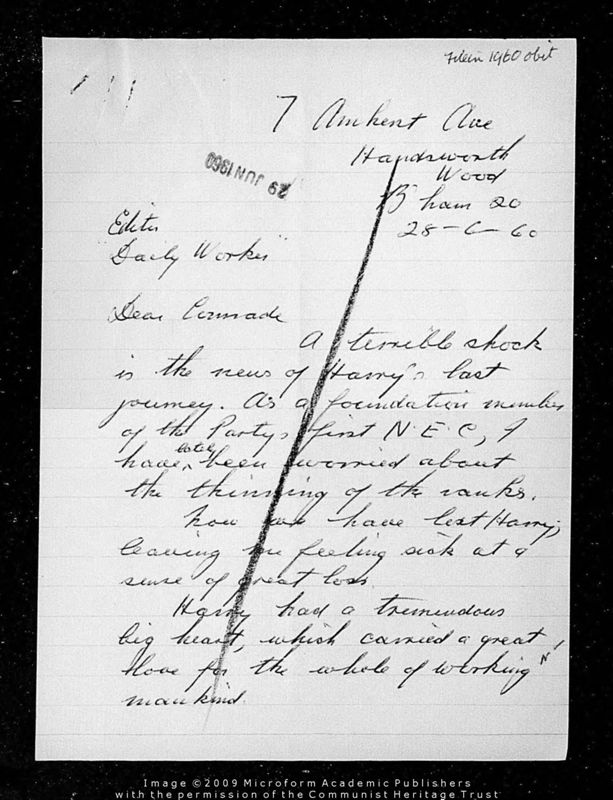 1960 obit
7 Amherst Ave
Handsworth
Wood
B'ham 20
28-6-60
29 JUN 1960
Editor
"Daily Worker"
Dear Comrade
A terrible shock
is the news of Harry's last
journey. As a foundation member
of the Party's first N.E.C, I
have lately been worried about
the thinning of the ranks.
Now we have lost Harry,
leaving me feeling sick at a
sense of great loss.
Harry had a tremendous
big heart, which carried a great
love for the whole of working
mankind.
Image ©2009 Microform Academic Publishers
with the permission of the Communist Heritage Trust